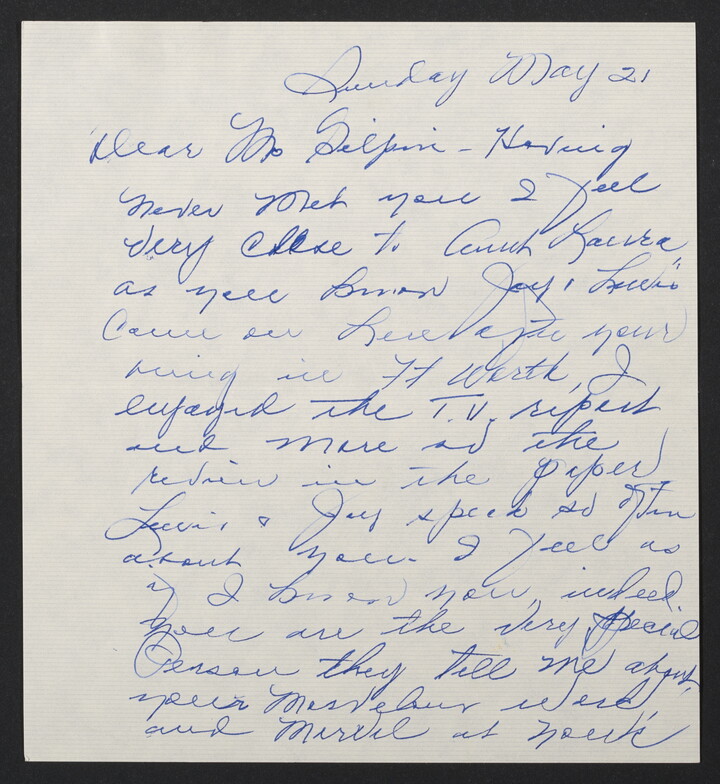 Sunday May 21
Dear Ms Gilpin - Having
never met you I feel
very close to "Aunt Laura"
as you know Joy & Lewis
came on here after your
in Ft Worth, I
enjoyed the T.V. report
and more so the
review in the paper
Lewis & Joy speak so often
about you - I feel as
if I know you, indeed
you are the very special
Person they tell me about,
your marvelous work,
and marvel at your